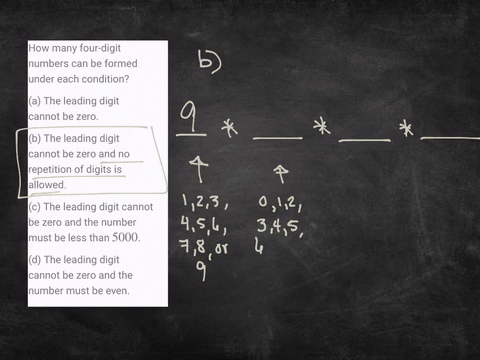 How many four-digit
numbers can be formed
under each condition?
(a) The leading digit
cannot be zero.
(b) The leading digit
cannot be zero and no
repetition of digits is
allowed.
(c) The leading digit cannot
be zero and the number
must be less than 5000.
(d) The leading digit
cannot be zero and the
number must be even.
b)
9 * __ * __ * __
1,2,3,
4,5,6,
7,8,or
9
0,1,2,
3,4,5,
6